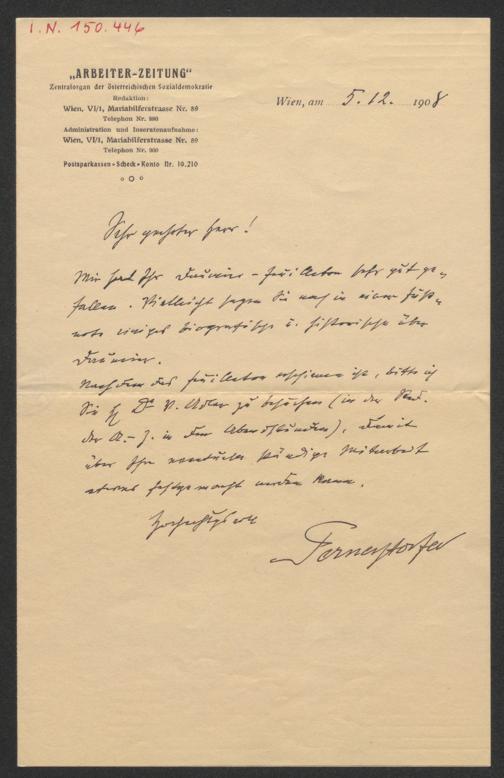 I.N. 150.446
„ARBEITER-ZEITUNG“
Zentralorgan der österreichischen Sozialdemokratie
Redaktion:
Wien, VI/1, Mariahilferstrasse Nr. 89
Telephon Nr. 880
Administration und Inseratenaufnahme:
Wien, VI/1, Mariahilferstrasse Nr. 89
Telephon Nr. 900
Postsparkassen-Scheck-Konto Nr. 10.210
Wien, am 5.12. 1908
Sehr geehrter Herr!
Mir hat Ihr Daumier-Feuilleton sehr gut ge-
fallen. Vielleicht sagen Sie noch in einer Fuß-
note einiges Biografische u. Historische über
Daumier.
Nachdem das Feuilleton erschienen ist, bitte ich
Sie H Dr V. Adler zu besuchen (in der Red.
der A.-Z. in den Abendstunden), damit
über Ihre eventuelle ständige Mitarbeit
etwas festgemacht werden kann.
Hochachtungsvoll
Pernerstorfer